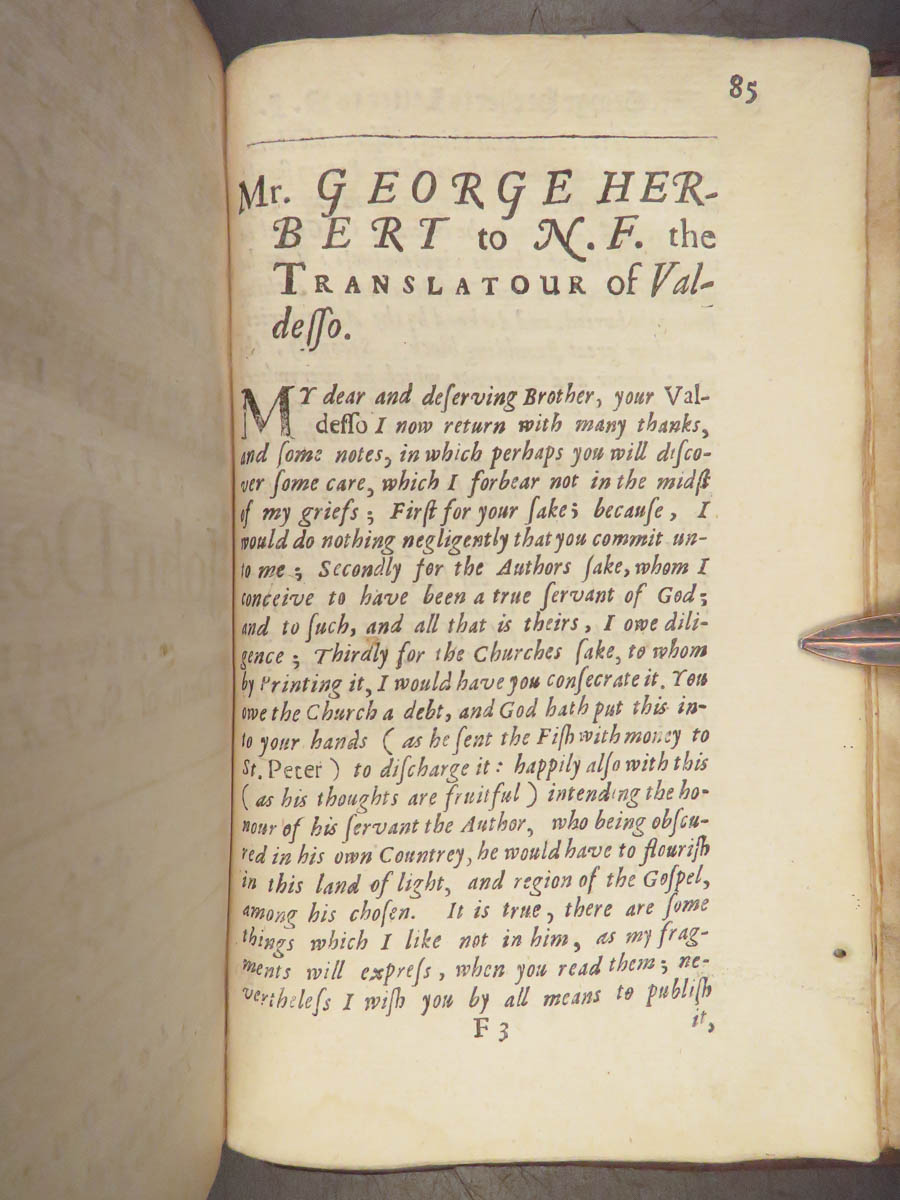 85
Mr. GEORGE HER-
BERT to N.F. the
TRANSLATOUR of Val-
deſſo.
MY dear and deſerving Brother, your Val-
deſſo I now return with many thanks,
and ſome notes, in which perhaps you will diſco-
ver ſome care, which I forbear not in the midſt
of my griefs; Firſt for your ſake; because, I
would do nothing negligently that you commit un-
to me; Secondly for the Authors ſake, whom I
conceive to have been a true ſervant of God;
and to ſuch, and all that is theirs, I owe dili-
gence; Thirdly for the Churches ſake, to whom
by Printing it, I would have you conſecrate it. You
owe the Church a debt, and God hath put this in-
to your hands (as he ſent the Fiſh with money to
St. Peter) to diſcharge it: happily alſo with this
(as his thoughts are fruitful) intending the ho-
nour of his ſervant the Author, who being obſcu-
red in his own Countrey, he would have to flouriſh
in this land of light, and region of the Goſpel,
among his choſen. It is true, there are ſome
things which I like not in him, as my frag-
ments will expreſs, when you read them; ne-
vertheleſs I wiſh you by all means to publiſh
F 3 it,